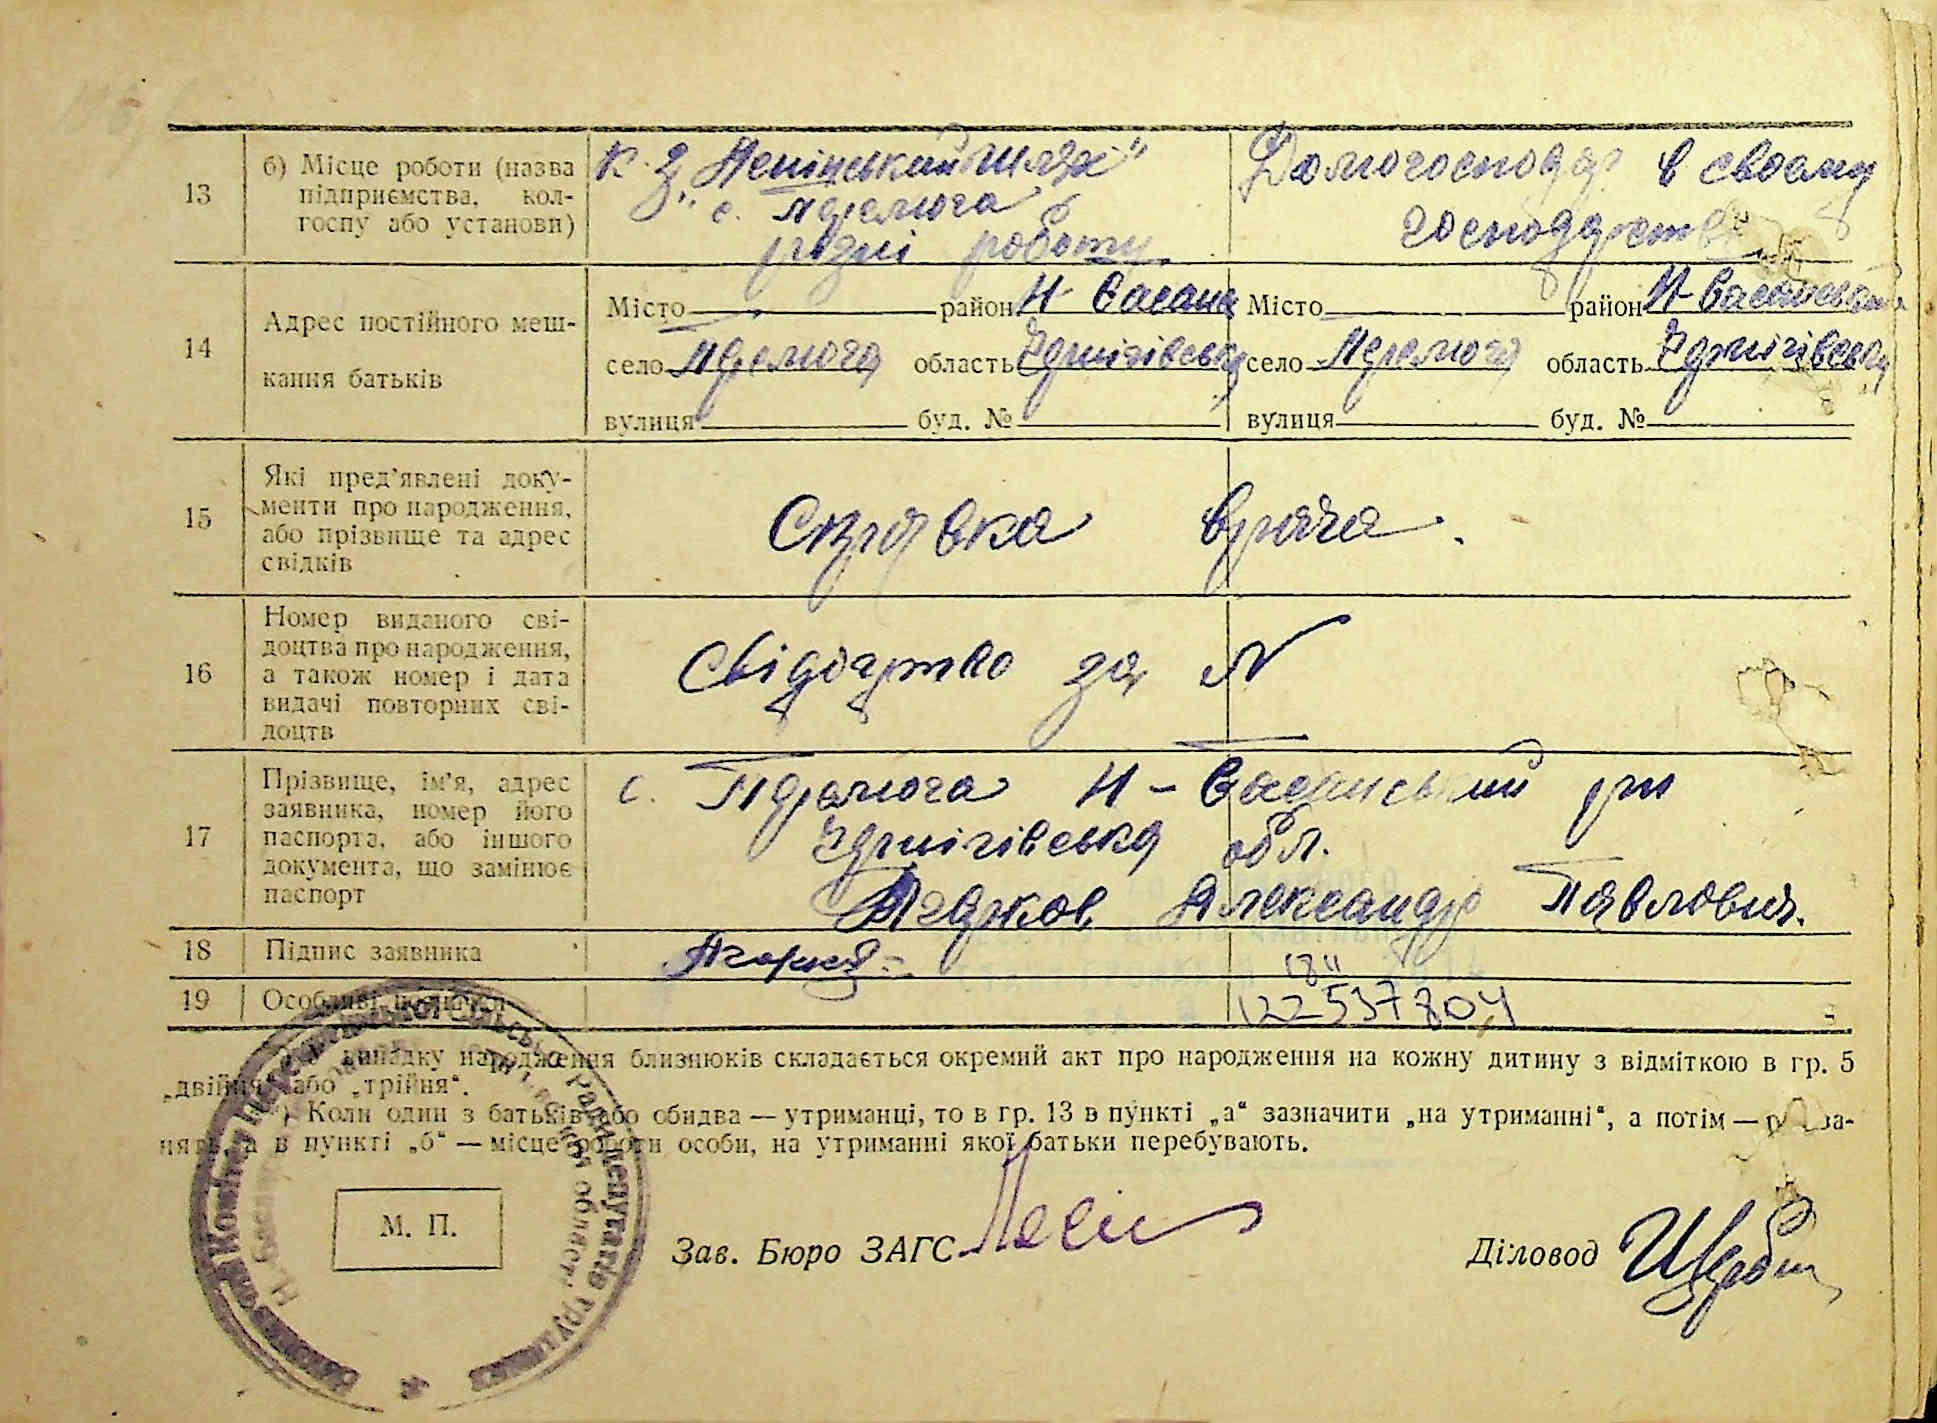 13
б) Місце роботи (назва
підприємства, кол-
госпу або установи)
К-з „Ленінський Шлях"
с. Перемога
різні роботи
Домогосподар в своєму
господарстві
14
Адрес постійного меш-
кання батьків
Місто район Н-Басан
село Перемога область Чернігівська
вулиця буд. №
Місто район Н-Басанський
село Перемога область Чернігівська
вулиця буд. №
15
Які пред'явлені доку-
менти про народження,
або прізвище та адрес
свідків
Справка врача.
16
Номер виданого сві-
доцтва про народження,
а також номер і дата
видачі повторних сві-
доцтв
Свідоцтво за N
17
Прізвище, ім'я, адрес
заявника, номер його
паспорта, або іншого
документа, що замінює
паспорт
с. Перемога Н-Басанський р-н
Чернігівська обл.
Александр Павлович.
18
Підпис заявника
19
Особливі
У випадку народження близнюків складається окремий акт про народження на кожну дитину з відміткою в гр. 5
„двійня" або „трійня".
*) Коли один з батьків або обидва — утриманці, то в гр. 13 в пункті „а" зазначити „на утриманні", а потім —
а в пункті „б" — місце роботи особи, на утриманні якої батьки перебувають.
М. П.
Зав. Бюро ЗАГС
Діловод